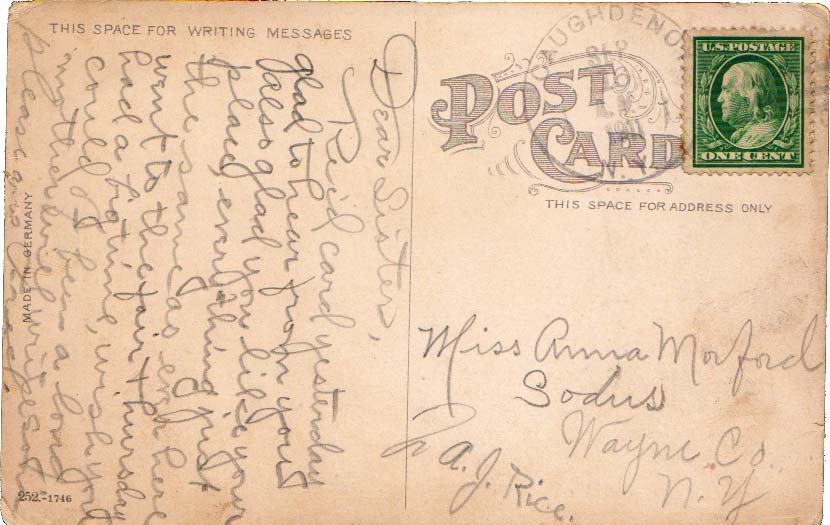 THIS SPACE FOR WRITING MESSAGES
Dear Sister,
Re'd card yesterday
glad to hear from you
also glad you like your
place, everything just
the same as ever here
went to the fair Thursday
had a fine time, wish you
could of been along
mother will write soon
please ans
MADE IN GERMANY
252.-1746
POST CARD
AUGHDENO
SEP
N.Y.
U.S. POSTAGE
ONE CENT
THIS SPACE FOR ADDRESS ONLY
Miss Anna Morford
Sodus
Wayne Co.
N. Y
A. J. Rice.